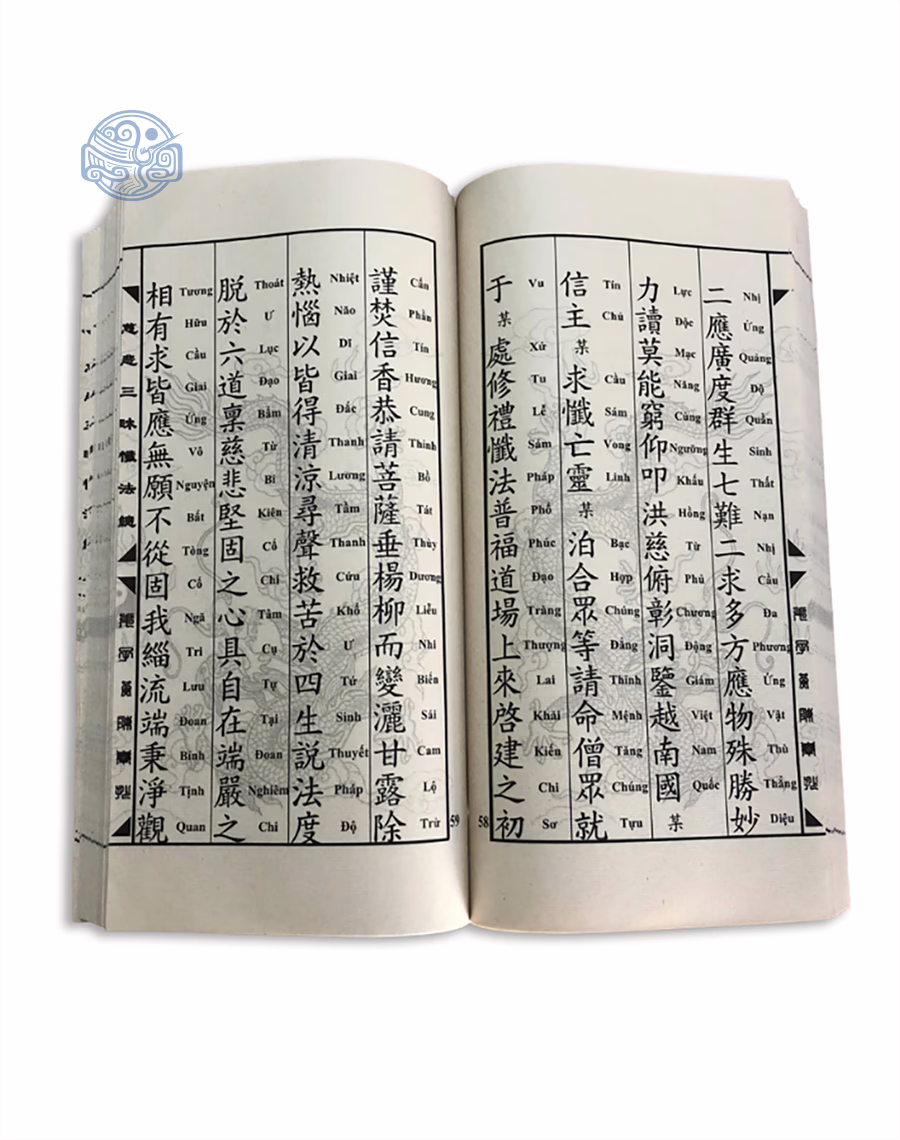 二應廣度群生七難二求多方應物殊勝妙
Nhị Ứng Quảng Độ Quần Sinh Thất Nạn Nhị Cầu Đa Phương Ứng Vật Thù Thắng Diệu
力讀莫能窮仰叩洪慈俯彰洞鑒越南國某
Lực Độc Mạc Năng Cùng Ngưỡng Khấu Hồng Từ Phủ Chương Động Giám Việt Nam Quốc
信主某求懺亡靈某泊合眾等請命僧眾就
Tín Chủ Cầu Sám Vong Linh Bạc Hợp Chúng Đẳng Thỉnh Mệnh Tăng Chúng Tựu
于某處修禮懺法普福道場上來啓建之初
Vu Xứ Tu Lễ Sám Pháp Phổ Phúc Đạo Tràng Thượng Lai Khải Kiến Chi Sơ
58
59
謹焚信香恭請菩薩垂楊柳而變灑甘露除
Cẩn Phần Tín Hương Cung Thỉnh Bồ Tát Thùy Dương Liễu Nhi Biến Sái Cam Lộ Trừ
熱惱以皆得清涼尋聲救苦於四生説法度
Nhiệt Não Dĩ Giai Đắc Thanh Lương Tầm Thanh Cứu Khổ Ư Tứ Sinh Thuyết Pháp Độ
脱於六道稟慈悲堅固之心具自在端嚴之
Thoát Ư Lục Đạo Bẩm Từ Bi Kiên Cố Chi Tâm Cụ Tự Tại Đoan Nghiêm Chi
相有求皆應無願不從固我緇流端秉淨觀
Tương Hữu Cầu Giai Ứng Vô Nguyện Bất Tòng Cố Ngã Tri Lưu Đoan Bỉnh Tịnh Quan
三昧懺法